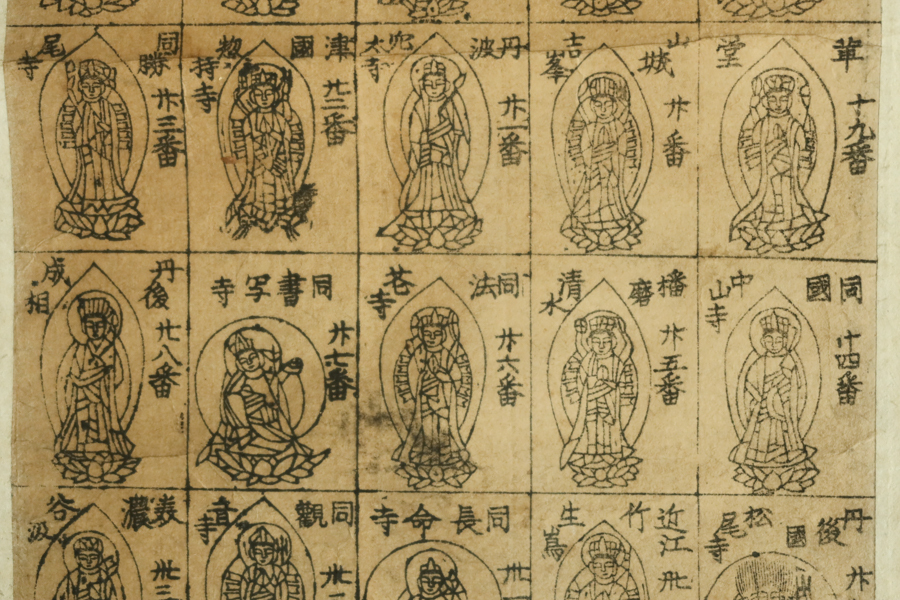 革堂
十九番
山城 吉峯
卄番
丹波 穴太寺
卄一番
津國 惣持寺
卄二番
同勝尾寺
卄三番
同國 中山寺
卄四番
播磨 清水
卄五番
同法花寺
卄六番
同書写寺
卄七番
丹後 成相
卄八番
丹後國 松尾寺
卄
近江 竹生嶌
卅
同長命寺
卅
同觀音寺
卅
美濃 谷汲
卅三